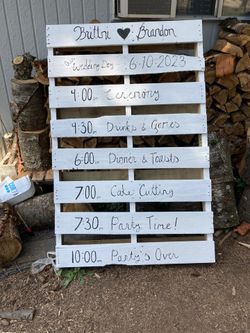 Brittni ♥ Brandon
Wedding Day 6-10-2023
4:00pm Ceremony
4:30pm Drinks & Games
6:00pm Dinner & Toasts
7:00pm Cake Cutting
7:30pm Party Time!
10:00pm Party's Over